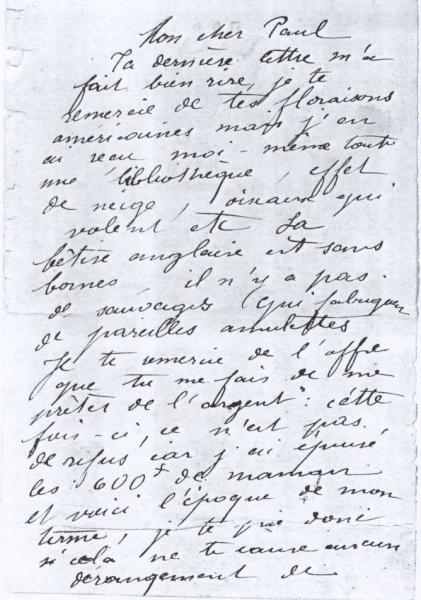 Mon cher Paul
Ta dernière lettre m'a
fait bien rire, je te
remercie de tes floraisons
américaines mais j'en
ai reçu moi-même toute
une bibliothèque, effet
de neige, oiseaux qui
volent etc La
bêtise anglaise est sans
bornes il n'y a pas
de sauvages qui fabriquent
de pareilles amulettes
Je te remercie de l'offre
que tu me fais de me
prêter de l'argent: cette
fois-ci, ce n'est pas
de refus car j'ai épuisé
les 600f de maman
et voici l'époque de mon
terme, je te prie donc
si cela ne te cause aucun
dérangement de